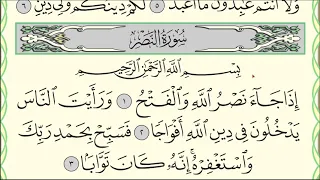 وَلَا أَنتُمْ عَٰبِدُونَ مَا أَعْبُدُ ٥ لَكُمْ دِينُكُمْ وَلِيَ دِينِ ٦
سُورَةُ النَّصْرِ
بِسْمِ اللَّهِ الرَّحْمَٰنِ الرَّحِيمِ
إِذَا جَآءَ نَصْرُ اللَّهِ وَالْفَتْحُ ١ وَرَأَيْتَ النَّاسَ
يَدْخُلُونَ فِي دِينِ اللَّهِ أَفْوَاجًا ٢ فَسَبِّحْ بِحَمْدِ رَبِّكَ
وَاسْتَغْفِرْهُ إِنَّهُ كَانَ تَوَّابًا ٣